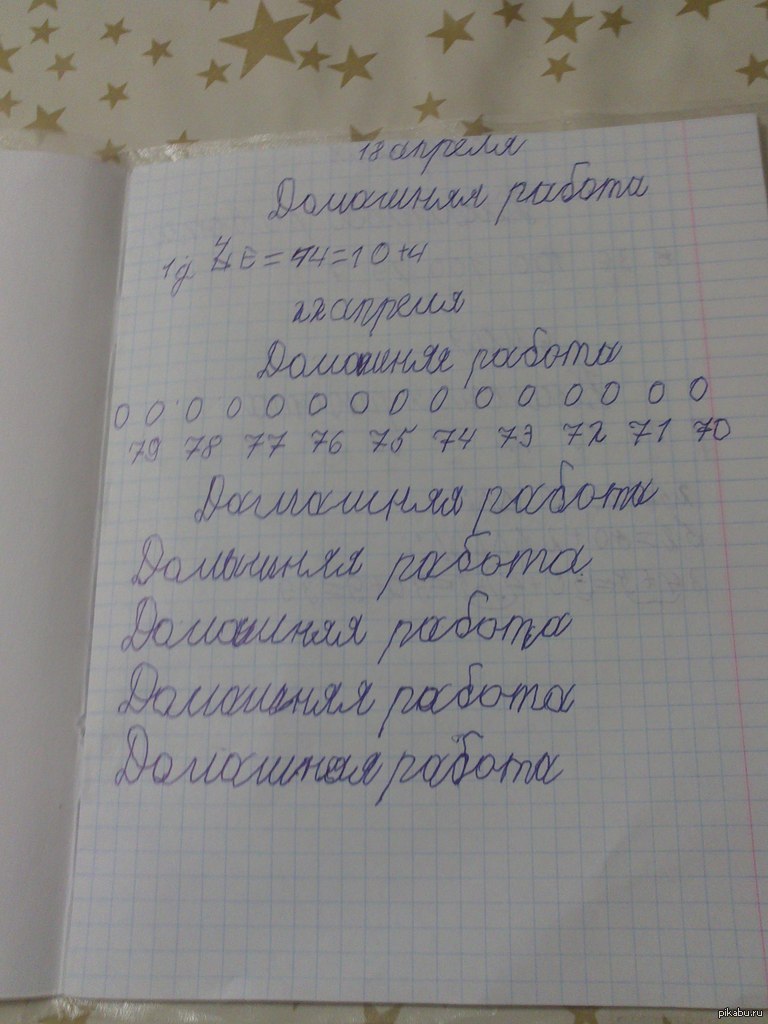 18 апреля
Домашняя работа
1д 4 Е = 14 = 10+4
22 апреля
Домашняя работа
0 0 0 0 0 0 0 0 0 0 0 0 0 0 0
79 78 77 76 75 74 73 72 71 70
Домашняя работа
Домашняя работа
Домашняя работа
Домашняя работа
Домашняя работа
pikabu.ru